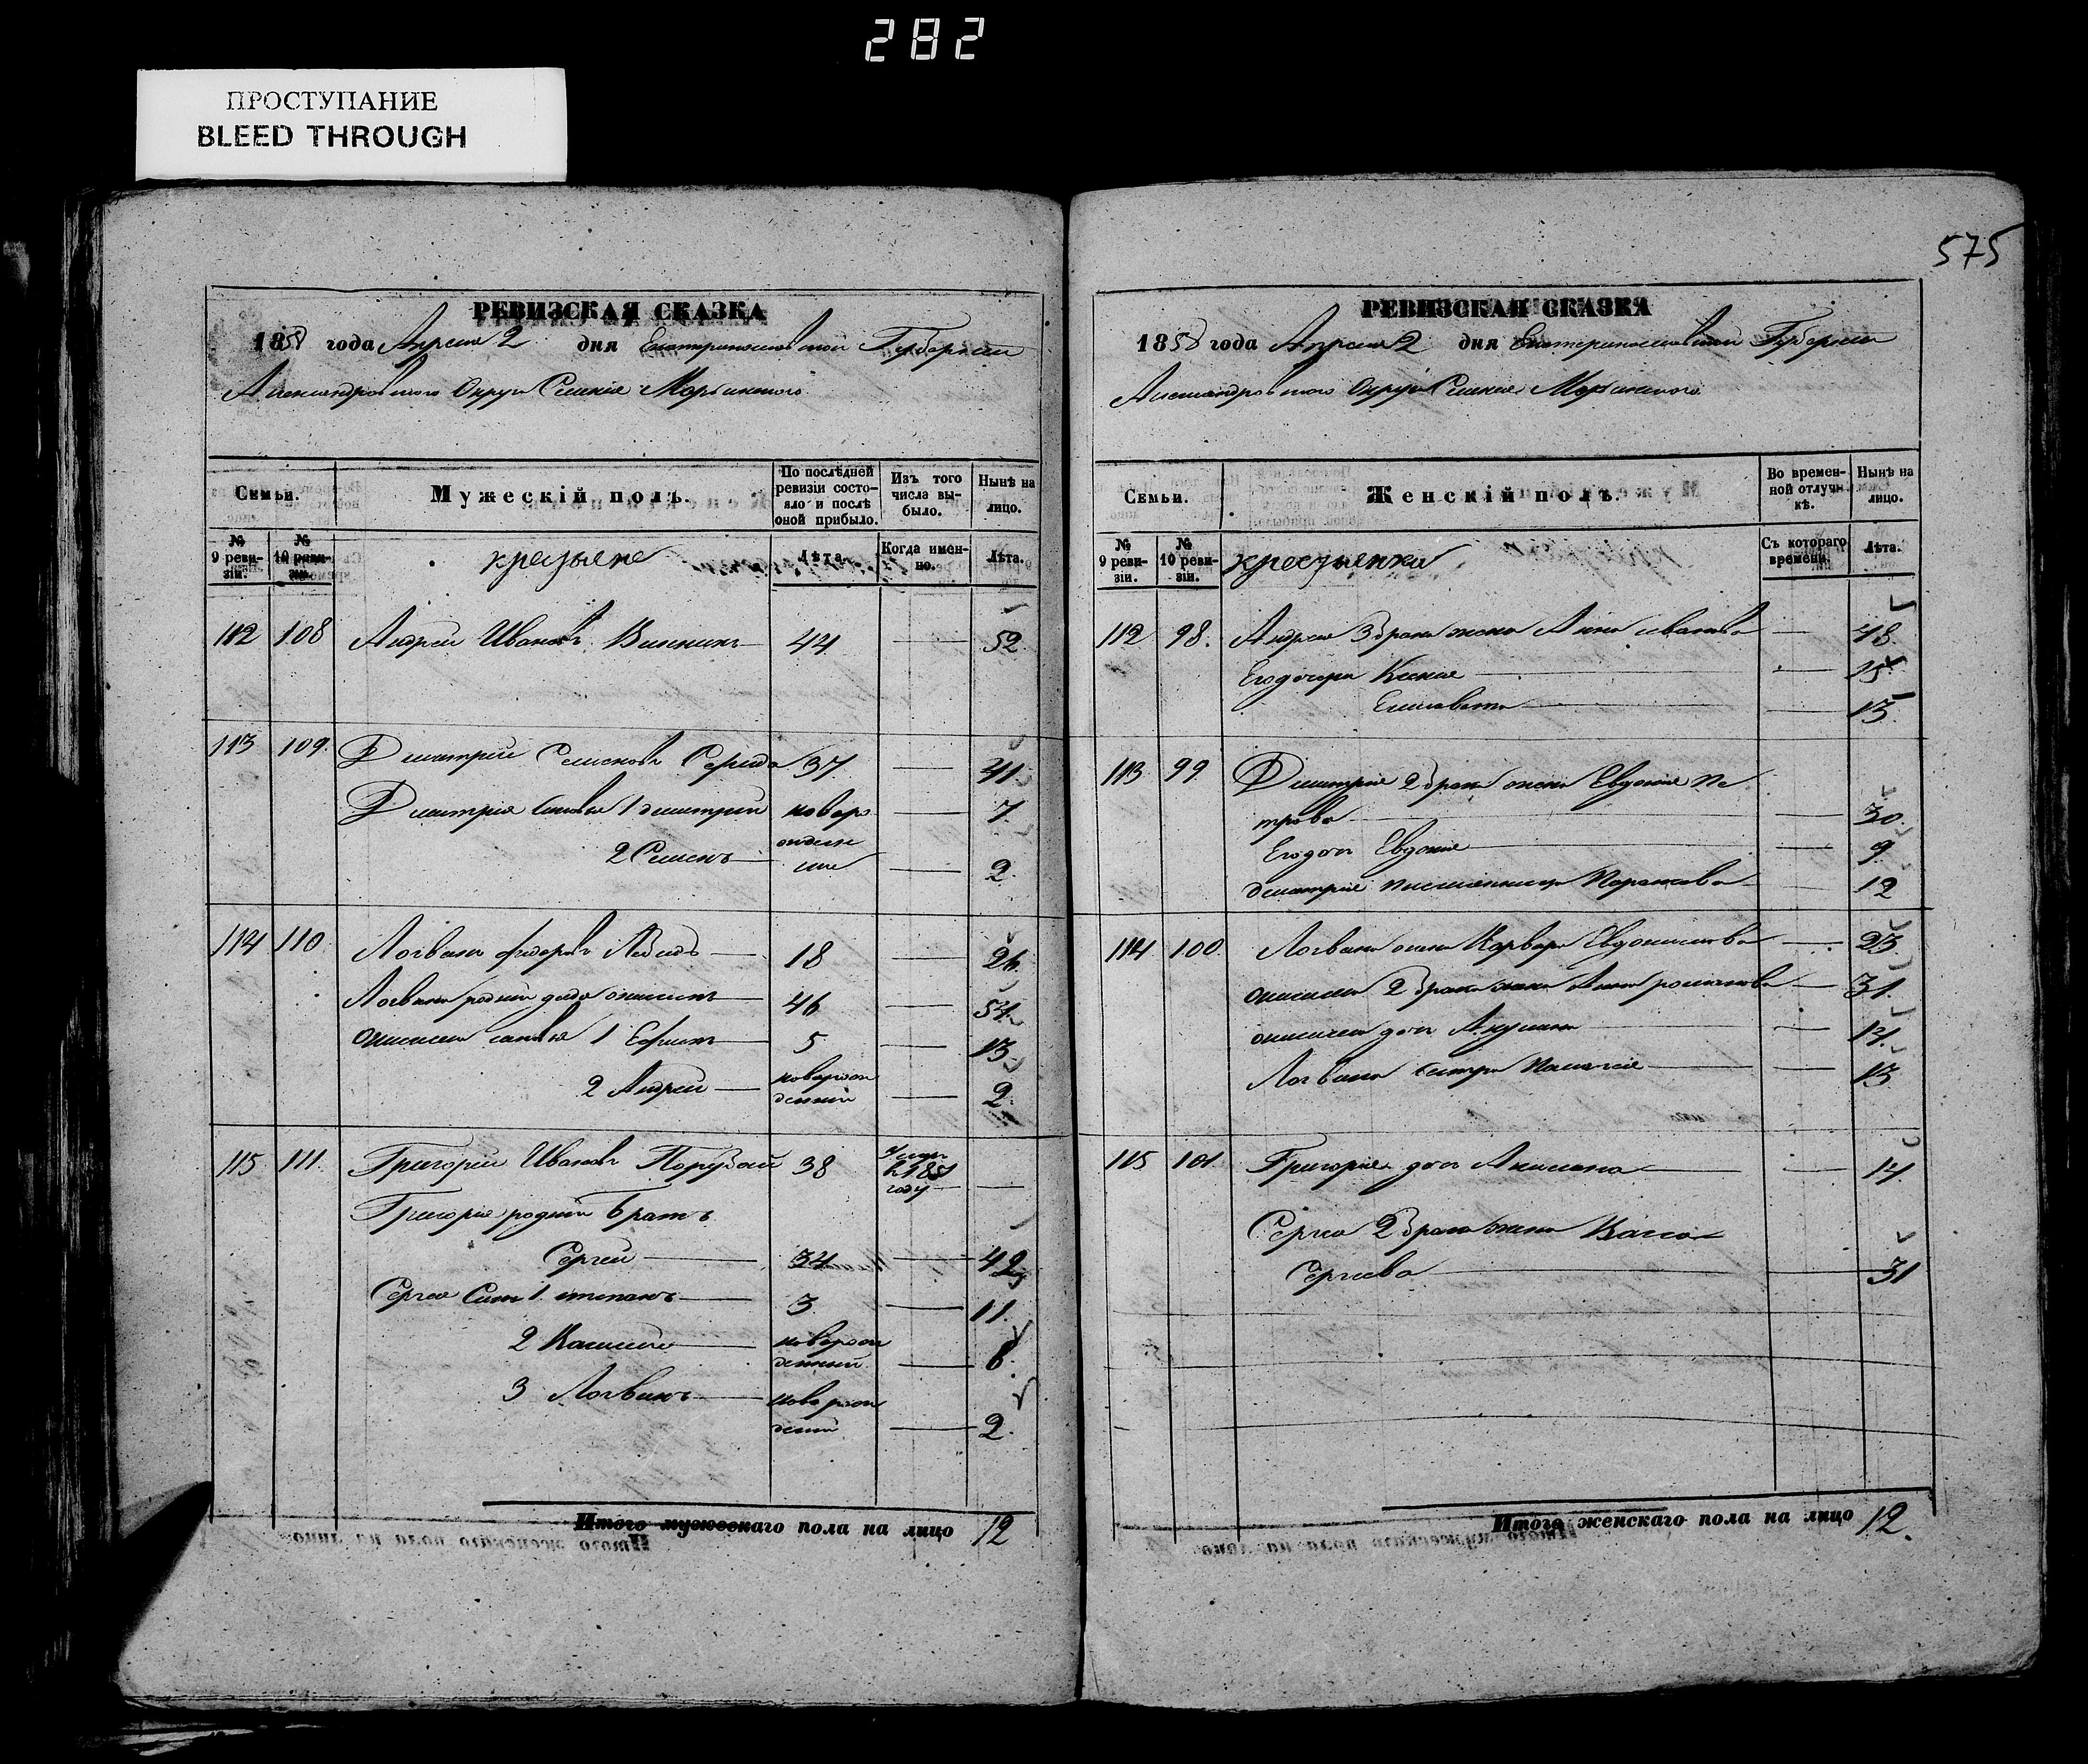 282
ПРОСТУПАНИЕ
BLEED THROUGH
РЕВИЗСКАЯ СКАЗКА
1858 года Апреля 2 дня Екатеринославской Губернии
Александровского Округа Селения
Семьи.
Мужескій полъ.
По послѣдней ревизіи состояло и послѣ оной прибыло.
Изъ того числа выбыло.
Нынѣ на лицо.
№ 9 ревизіи.
№ 10 ревизіи.
крестьяне
Лѣта.
Когда именно.
Лѣта.
112 108 Андрей Ивановъ 44 — 52.
113 109. Дмитрий Семеновъ Середа 37 — 41
Дмитрия сыновья 1 дмитрий новоро — 7.
2 Семенъ ожден ные — 2.
114 110 Логвинъ Федоровъ Лебедь — 18 — 26
Логвина родной дядя онисимъ — 46 — 54.
онисима сыновья 1 Ефимъ — 5 — 13
2 Андрей — новорож денний — 2.
115 111. Григорий Ивановъ 38 Умер в 185 году —
Григория родний братъ
Сергей — 34 — 42
Сергея Сын 1 степанъ — 3 — 11.
2 — новорож денний — 8.
3 Логвинъ — новорож дений — 2.
Итого мужескаго пола на лицо 12
575
РЕВИЗСКАЯ СКАЗКА
1858 года Апреля 2 дня Екатеринославской Губернии
Александровского Округа Селения
Семьи.
Женскій полъ.
Во временной отлучкѣ.
Нынѣ на лицо.
№ 9 ревизіи.
№ 10 ревизіи.
крестьянки
Съ котораго времени.
Лѣта.
112 98. Андрея 3 брака жена Анна иванова — 48
Его дочери Ксения — 15
Елисавета — 13
113 99 Дмитрия 2 брака жена Евдокия Пе
трова — 30.
Его доч Евдокия — 9
дмитрия Парасковья — 12
114 100. Логвина жена Варвара Евдокимова — 23
онисима 2 брака жена Анна романова — 31.
онисима доч Акулина — 14.
Логвина сестра Пелагия — 13
115 101 Григория доч Акилина — 14
Сергея 2 брака жена Васса
Сергеева — 31
Итого женскаго пола на лицо 12.